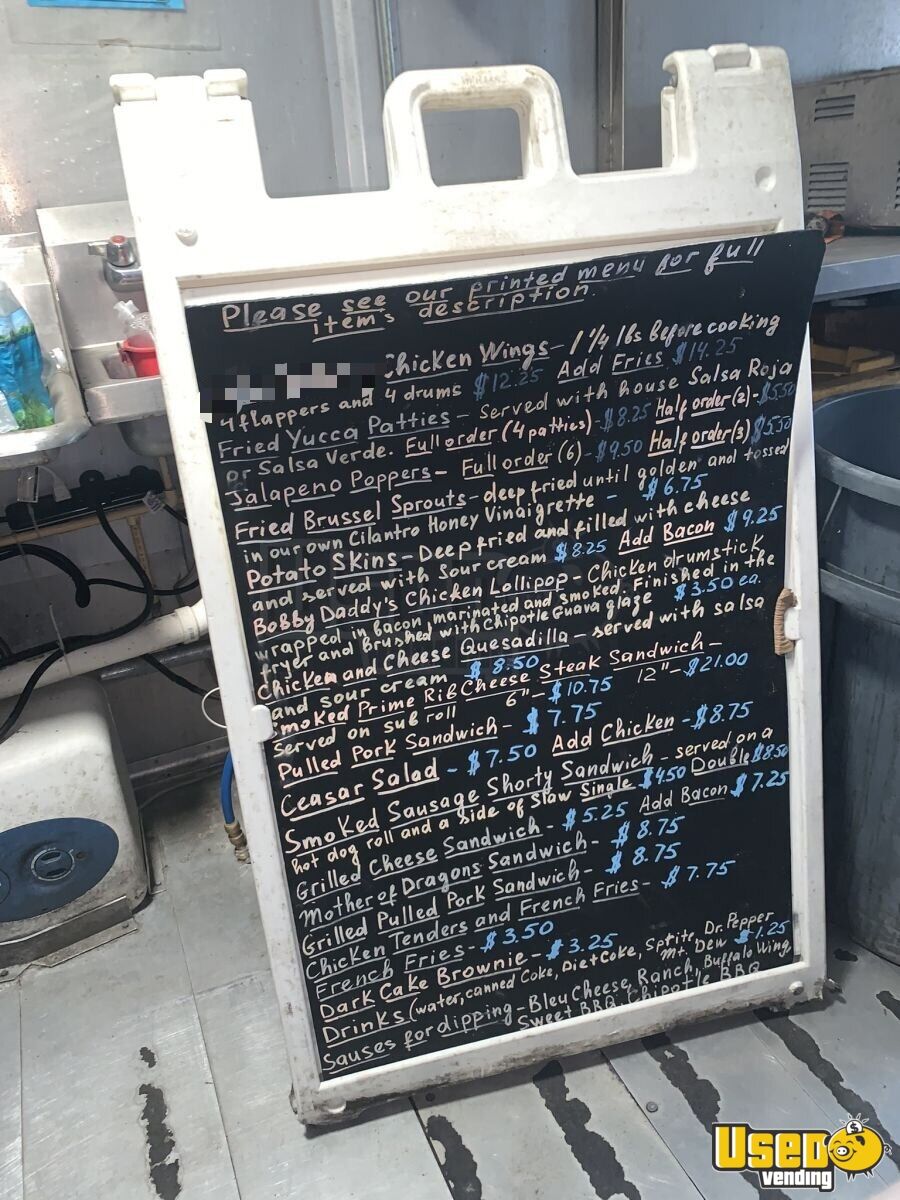 Please see our printed menu for full
item's description.
Chicken Wings - 1 1/4 lbs before cooking
4 flappers and 4 drums $12.25 Add Fries $14.25
Fried Yucca Patties - Served with house Salsa Roja
or Salsa Verde. Full order (4 patties) - $8.25 Half order (2) - $5.50
Jalapeno Poppers - Full order (6) - $9.50 Half order (3) $5.50
Fried Brussel Sprouts - deep fried until golden and tossed
in our own Cilantro Honey Vinaigrette - $6.75
Potato Skins - Deep fried and filled with cheese
and served with sour cream $8.25 Add Bacon $9.25
Bobby Daddy's Chicken Lollipop - Chicken drumstick
wrapped in bacon, marinated and smoked. Finished in the
fryer and brushed with Chipotle Guava glaze $3.50 ea.
Chicken and Cheese Quesadilla - served with salsa
and sour cream $8.50
Smoked Prime Rib Cheese Steak Sandwich -
served on sub roll 6" - $10.75 12" - $21.00
Pulled Pork Sandwich - $7.75
Ceasar Salad - $7.50 Add Chicken - $8.75
Smoked Sausage Shorty Sandwich - served on a
hot dog roll and a side of slaw Single $4.50 Double $8.50
Grilled Cheese Sandwich - $5.25 Add Bacon $7.25
Mother of Dragons Sandwich - $8.75
Grilled Pulled Pork Sandwich - $8.75
Chicken Tenders and French Fries - $7.75
French Fries - $3.50
Dark Cake Brownie - $3.25
Drinks (water, canned Coke, Diet Coke, Sprite, Dr. Pepper
Mt. Dew $1.25
Sauses for dipping - Bleu Cheese, Ranch, Buffalo Wing
Sweet BBQ, Chipotle BBQ
USED
vending